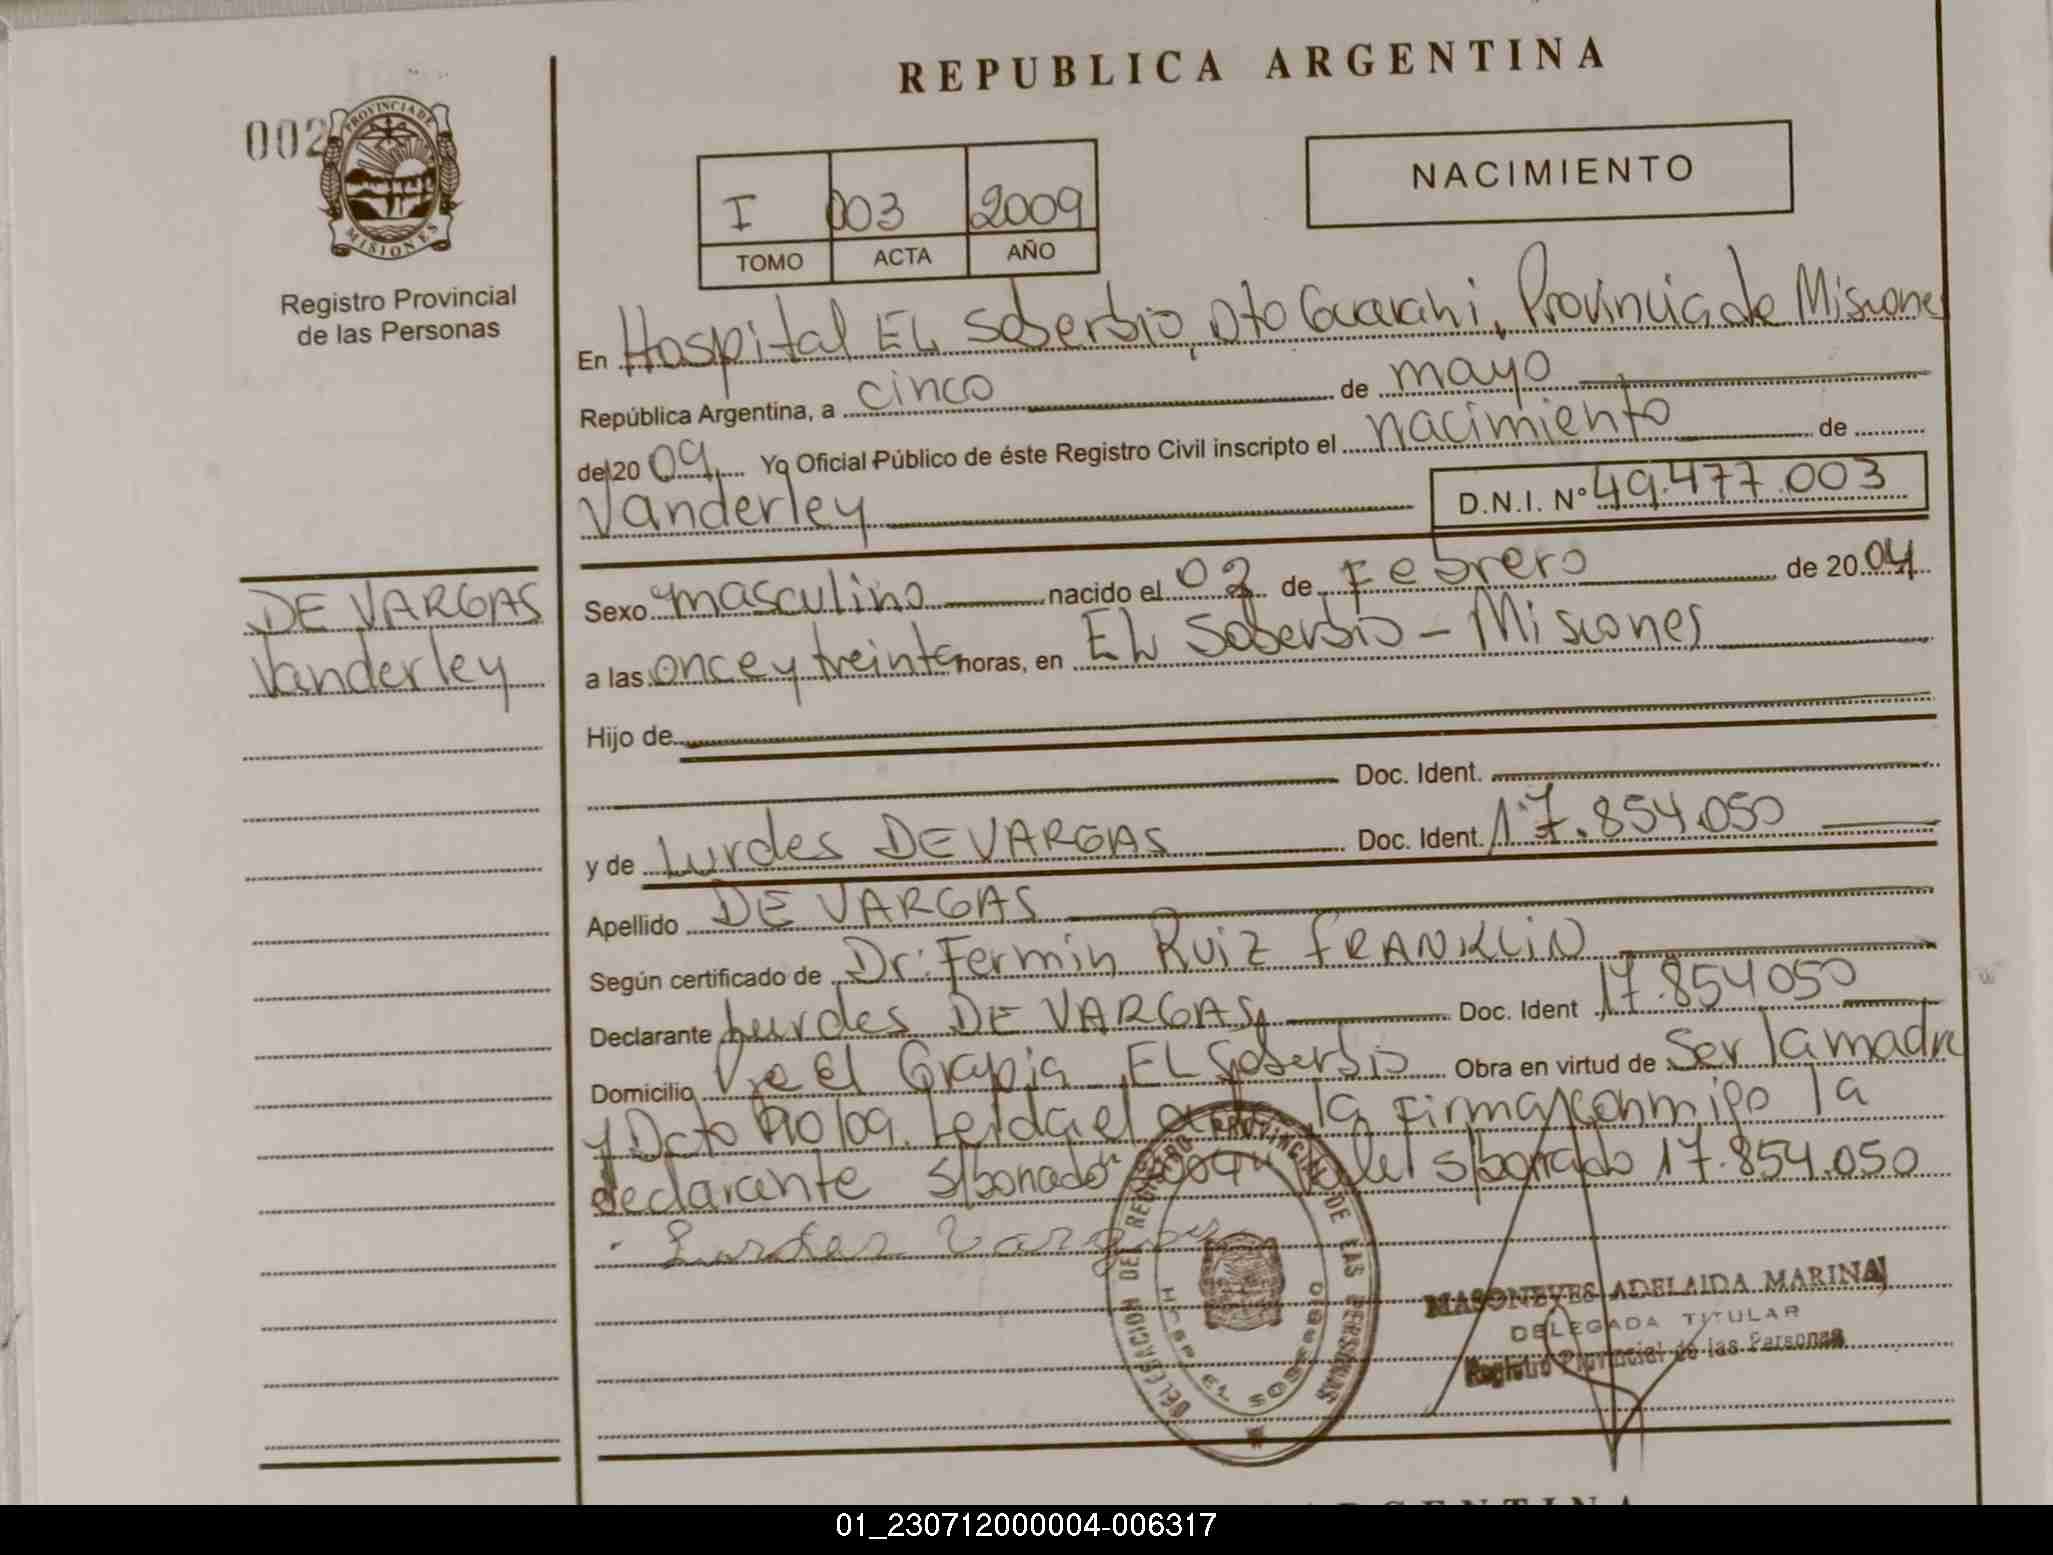 REPUBLICA ARGENTINA
002
PROVINCIA DE
MISIONES
Registro Provincial
de las Personas
NACIMIENTO
I 003 2009
TOMO ACTA AÑO
En Hospital EL Soberbio, Dto Guarani, Provincia de Misiones
República Argentina, a cinco de mayo
del 20 09 Yo Oficial Público de éste Registro Civil inscripto el nacimiento de
Vanderley
D.N.I. Nº 49.477.003
DE VARGAS
Vanderley
Sexo masculino nacido el 02 de Febrero de 20 04
a las once y treinta horas, en EL Soberbio - Misiones
Hijo de
Doc. Ident.
y de Lurdes DE VARGAS Doc. Ident. 17.854.050
Apellido DE VARGAS
Según certificado de Dr: Fermin Ruiz FRANKLIN
Declarante Lurdes DE VARGAS Doc. Ident 17.854050
Domicilio EL Soberbio Obra en virtud de Ser la madre
y Dcto 90/09. Leida el acta, la firma conmigo la
declarante s/bonado 17.854.050
Lurdes Vargas
DELEGACION DEL REGISTRO PROVINCIAL DE LAS PERSONAS
HOSP. EL SOBERBIO
MASONEVES ADELAIDA MARINA
DELEGADA TITULAR
Registro Provincial de las Personas
01_230712000004-006317